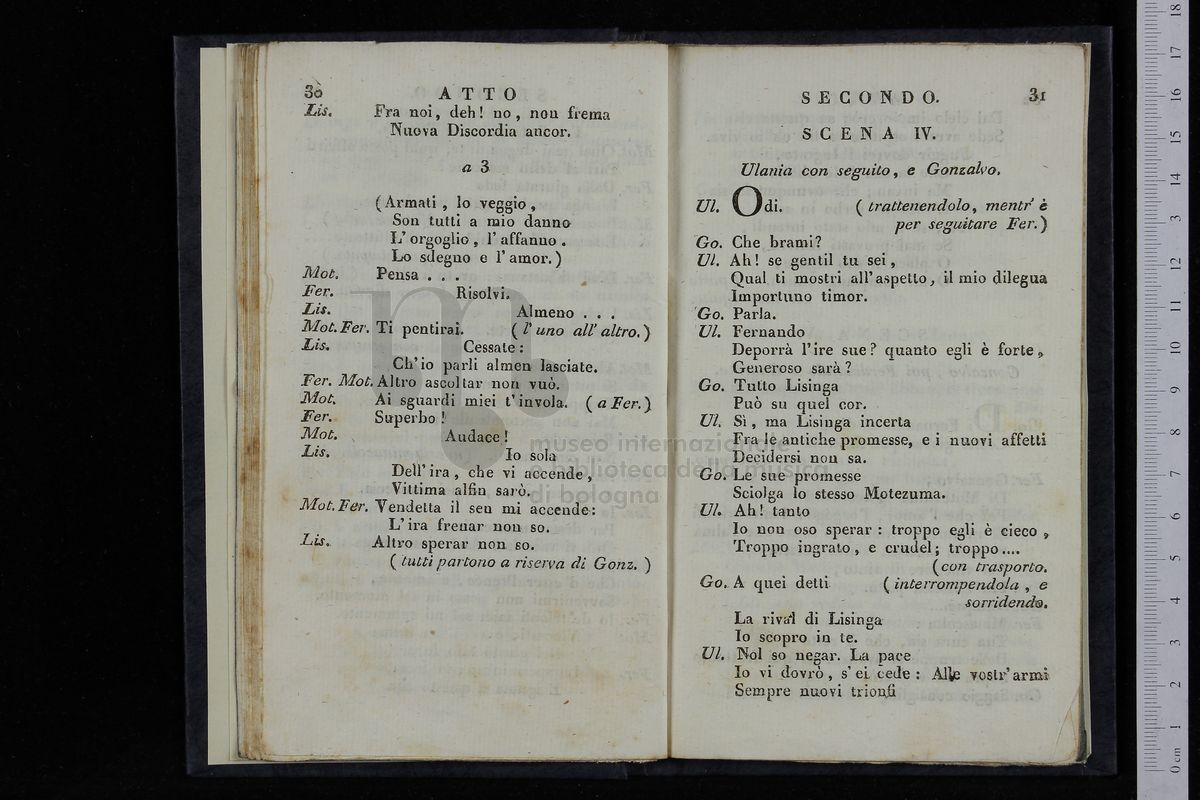 30
ATTO
Lis. Fra noi, deh! no, non frema
Nuova Discordia ancor.
a 3
(Armati, lo veggio,
Son tutti a mio danno
L'orgoglio, l'affanno.
Lo sdegno e l'amor.)
Mot. Pensa . . .
Fer. Risolvi.
Lis. Almeno . . .
Mot. Fer. Ti pentirai. (l'uno all'altro.)
Lis. Cessate:
Ch'io parli almen lasciate.
Fer. Mot. Altro ascoltar non vuò.
Mot. Ai sguardi miei t'invola. (a Fer.)
Fer. Superbo!
Mot. Audace!
Lis. Io sola
Dell'ira, che vi accende,
Vittima alfin sarò.
Mot. Fer. Vendetta il sen mi accende:
L'ira frenar non so.
Lis. Altro sperar non so.
(tutti partono a riserva di Gonz.)
SECONDO.
31
SCENA IV.
Ulania con seguito, e Gonzalvo.
Ul. Odi. (trattenendolo, mentr'è
per seguitare Fer.)
Go. Che brami?
Ul. Ah! se gentil tu sei,
Qual ti mostri all'aspetto, il mio dilegua
Importuno timor.
Go. Parla.
Ul. Fernando
Deporrà l'ire sue? quanto egli è forte,
Generoso sarà?
Go. Tutto Lisinga
Può su quel cor.
Ul. Sì, ma Lisinga incerta
Fra le antiche promesse, e i nuovi affetti
Decidersi non sa.
Go. Le sue promesse
Sciolga lo stesso Motezuma.
Ul. Ah! tanto
Io non oso sperar: troppo egli è cieco,
Troppo ingrato, e crudel; troppo....
(con trasporto.
Go. A quei detti (interrompendola, e
sorridendo.
La rival di Lisinga
Io scopro in te.
Ul. Nol so negar. La pace
Io vi dovrò, s'ei cede: Alle vostr'armi
Sempre nuovi trionfi
museo internazionale
e biblioteca della musica
di bologna
0 cm 1 2 3 4 5 6 7 8 9 10 11 12 13 14 15 16 17 18